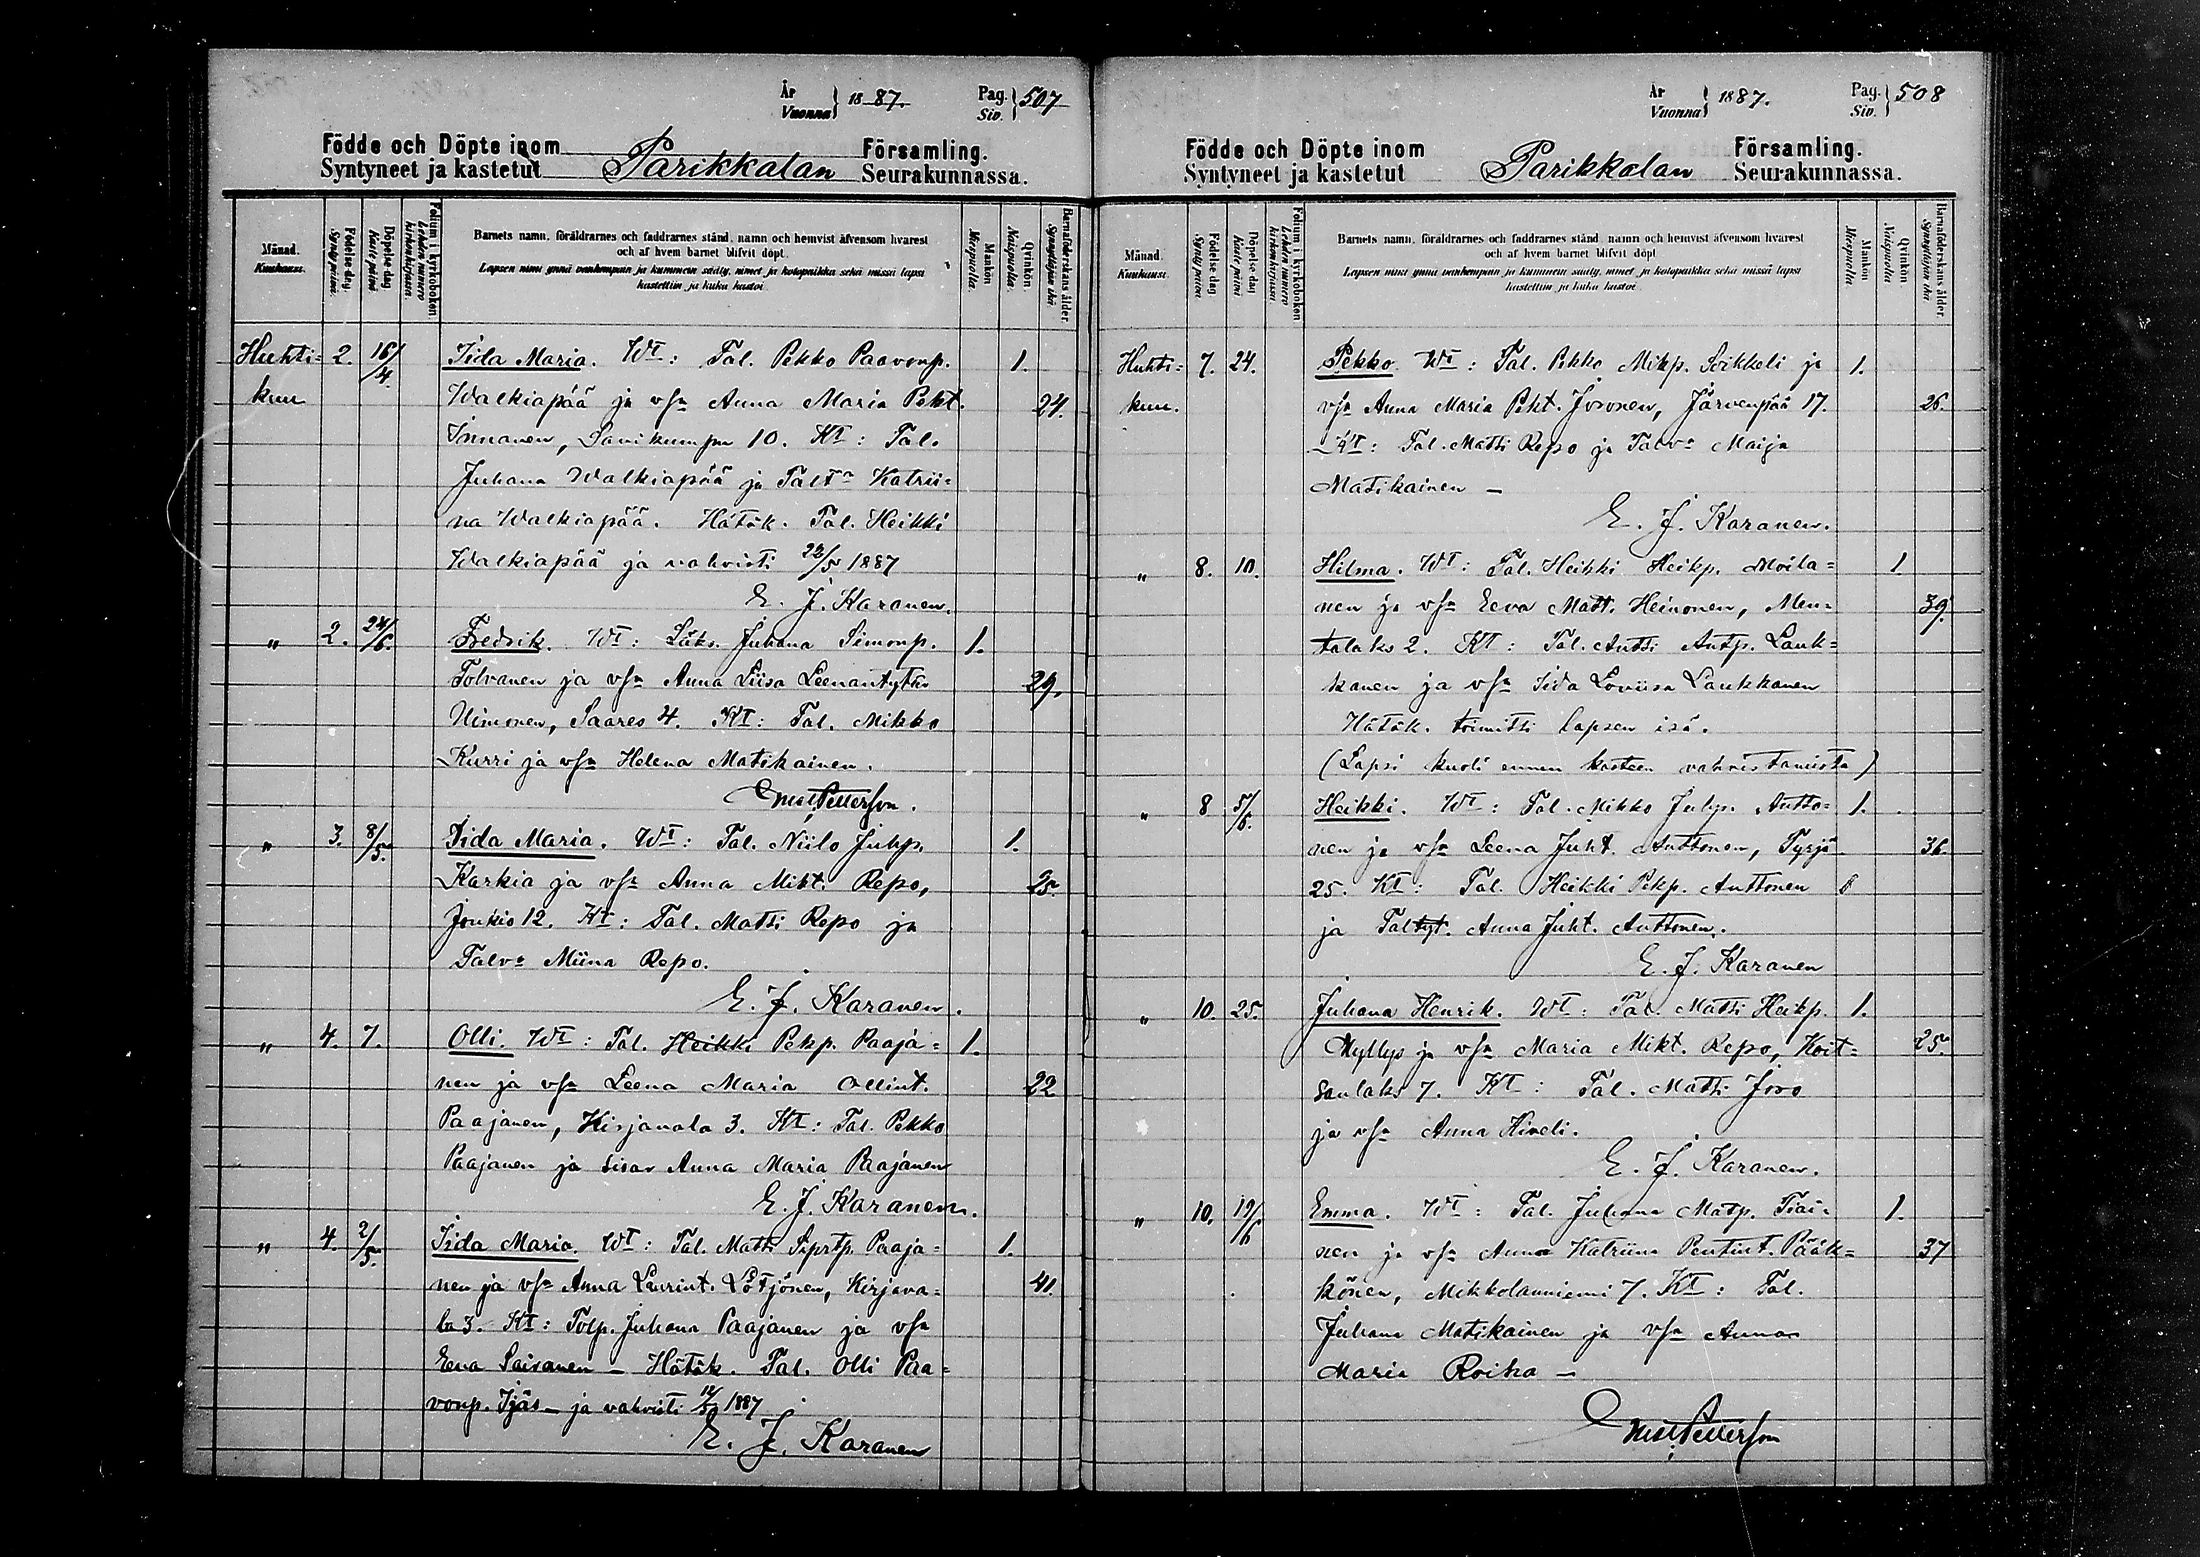 År
Vuonna } 1887.
Pag.
Siv. } 507
Födde och Döpte inom
Syntyneet ja kastetut Parikkalan Församling.
Seurakunnassa.
Månad.
Kuukausi.
Födelse dag
Synty päivä.
Döpelse dag
Kaste päivä
Folium i kyrkoboken
Lehden numero kirkonkirjassa.
Barnets namn, föräldrarnes och faddrarnes stånd, namn och hemvist äfvensom hvarest
och af hvem barnet blifvit döpt.
Lapsen nimi ynnä vanhempain ja kummein sääty, nimet ja kotopaikka sekä missä lapsi
kastettiin ja kuka kastoi.
Mankön
Miespuolia.
Qvinkön
Naispuolia.
Barnaföderskans ålder.
Synnyttäjän ikä.
Huhti= 2. 16/4. Iida Maria. Wt: Tal. Pekko Paavonp. 1.
kuu Walkiapää ja vsa Anna Maria Pekt. 24.
Innanen, Savikumpu 10. Kt: Tal.
Juhana Walkiapää ja Taltr Katrii=
na Walkiapää. Hätäk. Tal. Heikki
Walkiapää ja vahvisti 22/5 1887
E. J. Karanen.
" 2. 24/6. Fredrik. Wt: Läks. Juhana Simonp. 1.
Tolvanen ja vsa Anna Liisa Leenantytär 29.
Uimonen, Saares 4. Kt: Tal. Mikko
Kurri ja vsa Helena Matikainen.
Ernst Petterson.
" 3. 8/5. Iida Maria. Wt: Tal. Niilo Juhp. 1.
Karkia ja vsa Anna Mikt. Repo, 25.
Joukio 12. Kt: Tal. Matti Repo ja
Talva Miina Repo.
E. J. Karanen.
" 4. 7. Olli. Wt: Tal. Heikki Pekp. Paaja= 1.
nen ja vsa Leena Maria Ollint. 22
Paajanen, Kirjavala 3. Kt: Tal. Pekko
Paajanen ja sisar Anna Maria Paajanen
E. J. Karanen.
" 4. 2/5. Iida Maria. Wt: Tal. Matti Siprtp. Paaja= 1.
nen ja vsa Anna Laurint. Lötjönen, Kirjava= 41.
la 3. Kt: Tolp. Juhana Paajanen ja vsa
Eeva Saisanen – Hätäk. Tal. Olli Paa=
vonp. Ijäs – ja vahvisti 12/5 1887
E. J. Karanen
År
Vuonna } 1887.
Pag.
Siv. } 508
Födde och Döpte inom
Syntyneet ja kastetut Parikkalan Församling.
Seurakunnassa.
Månad.
Kuukausi.
Födelse dag
Synty päivä.
Döpelse dag
Kaste päivä
Folium i kyrkoboken
Lehden numero kirkonkirjassa
Barnets namn, föräldrarnes och faddrarnes stånd, namn och hemvist äfvensom hvarest
och af hvem barnet blifvit döpt
Lapsen nimi ynnä vanhempain ja kummein sääty, nimet ja kotopaikka sekä missä lapsi
kastettiin ja kuka kastoi
Mankön
Miespuolia
Qvinkön
Naispuolia
Barnaföderskans ålder.
Synnyttäjän ikä.
Huhti= 7. 24. Pekko. Wt: Tal. Pekko Mikp. Soikkeli ja 1.
kuu. vsa Anna Maria Pekt. Jooonen, Järvenpää 17. 26.
Kt: Tal. Matti Repo ja Talva Maija
Matikainen –
E. J. Karanen.
" 8. 10. Hilma. Wt: Tal. Heikki Heikp. Moila= 1.
nen ja vsa Eeva Matt. Heinonen, Men= 39.
talaks 2. Kt: Tal. Antti Antp. Lauk=
kanen ja vsa Iida Loviisa Laukkanen
Hätäk. toimitti lapsen isä.
(Lapsi kuoli ennen kasteen vahvistamista)
" 8 5/6. Heikki. Wt: Tal. Mikko Juhp. Antto= 1.
nen ja vsa Leena Juht. Anttonen, Tyrjä 36.
25. Kt: Tal. Heikki Pekp. Anttonen
ja Taltyt. Anna Juht. Anttonen.
E. J. Karanen
" 10. 25. Juhana Henrik. Wt: Tal. Matti Heikp. 1.
Myllys ja vsa Maria Mikt. Repo, Koit= 25.
sanlaks 7. Kt: Tal. Matti Jooo
ja vsa Anna Kineli.
E. J. Karanen.
" 10. 19/6 Emma. Wt: Tal. Juhana Matp. Tiai= 1.
nen ja vsa Anna Katriina Pentint. Pääk= 37
könen, Mikkolanniemi 7. Kt: Tal.
Juhana Matikainen ja vsa Anna
Maria Roiha –
Ernst Petterson